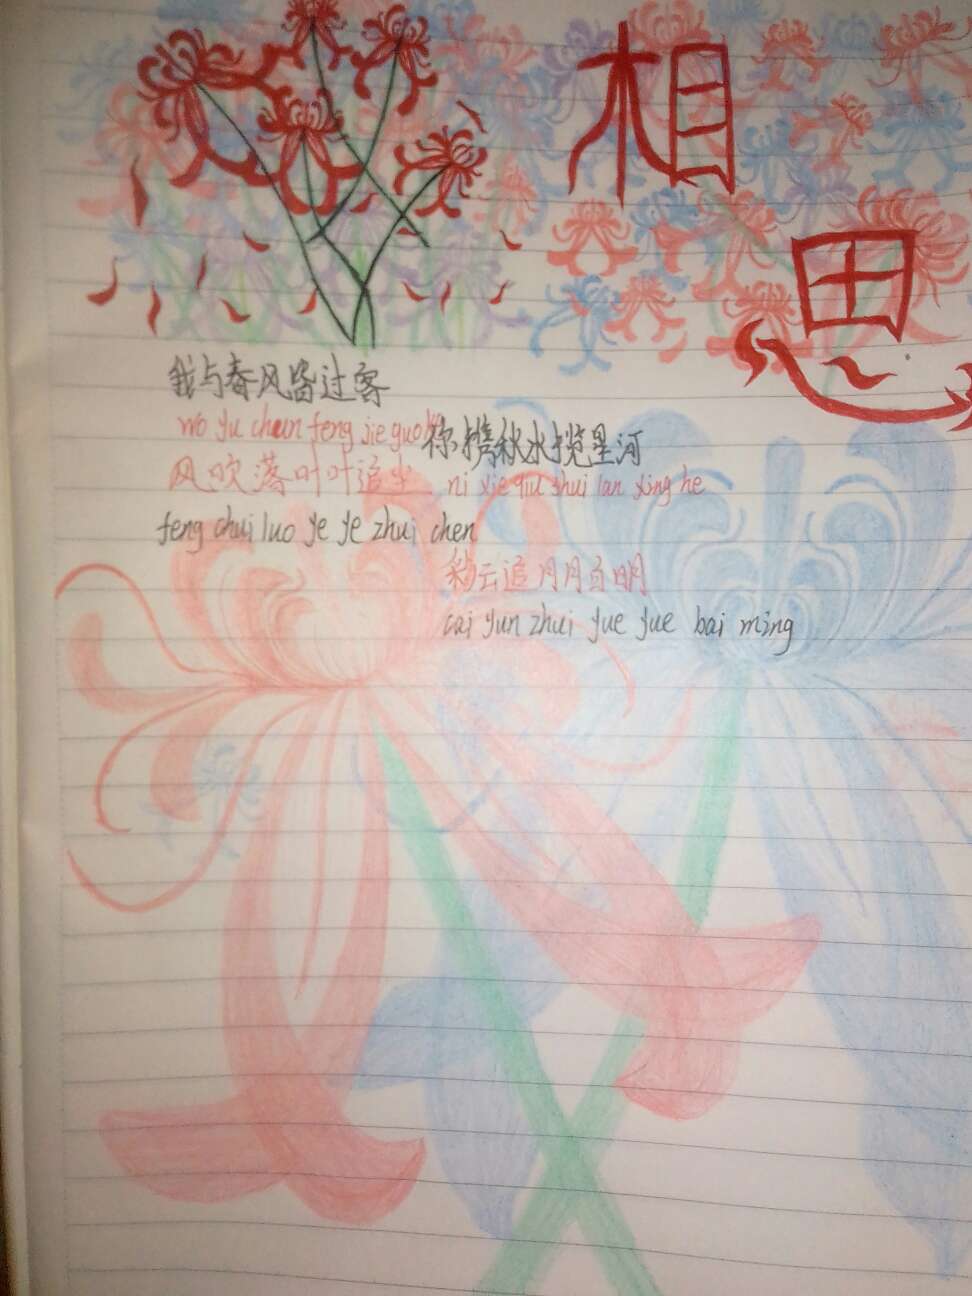 相
思
我与春风皆过客
wo yu chun feng jie guo
你携秋水揽星河
风吹落叶叶追尘
ni xie qiu shui lan xing he
feng chui luo ye ye zhui chen
彩云追月月自明
cai yun zhui yue yue bai ming